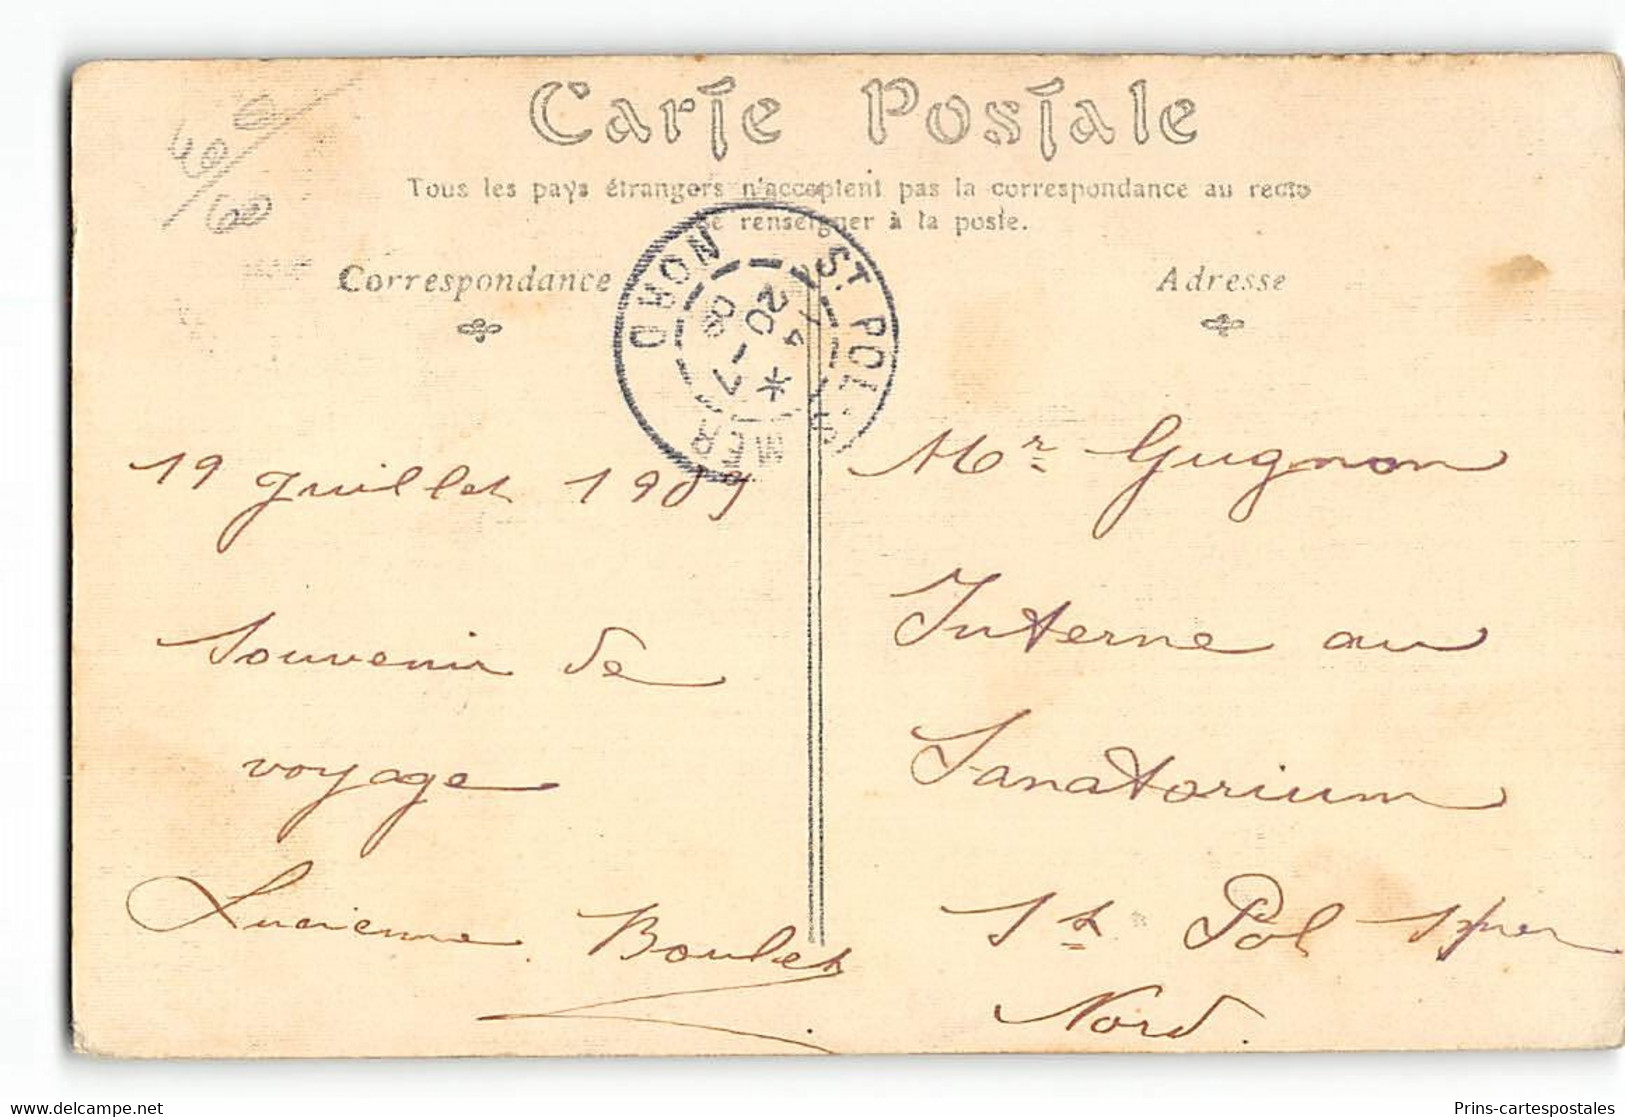 Carte Postale
Tous les pays étrangers n'acceptent pas la correspondance au recto
Se renseigner à la poste.
Correspondance
Adresse
ST. POL-S-MER
NORD
20 - 7
09
19 Juillet 1909
Souvenir de
voyage
Lucienne Boulet
Mr Gugnon
Interne au
Sanatorium
St Pol s/mer
Nord.
delcampe.net
Prins-cartespostales